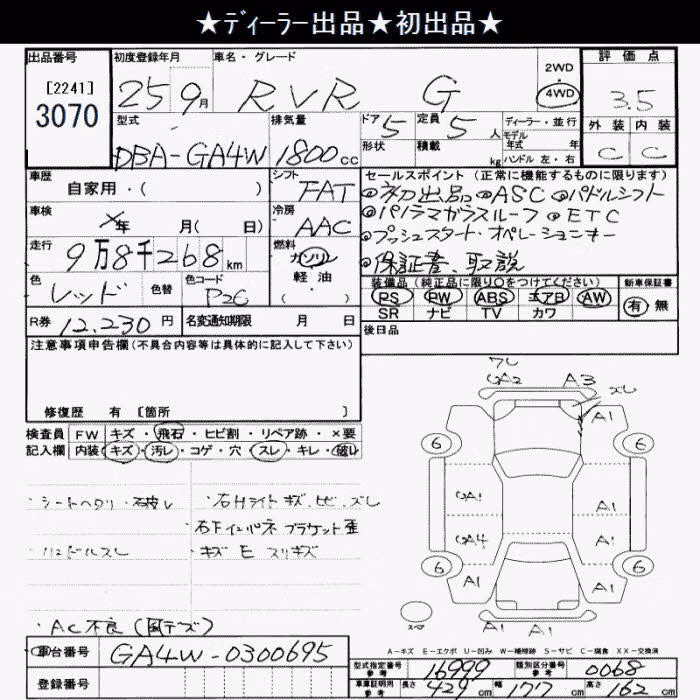 ★ディーラー出品★初出品★
出品番号
[2241]
3070
初度登録年月
25 9月
車名・グレード
RVR G
2WD
・
4WD
評価点
3.5
外装 内装
C C
型式
DBA-GA4W
排気量
1800cc
ドア 5
形状
定員 5人
積載 kg
ディーラー・並行
モデル年式 年
ハンドル 左・右
車歴
自家用・( )
シフト
FAT
車検
年 月( 日)
冷房
AAC
走行
9万8千268km
燃料
ガソリン
軽・油
色
レッド
色替
色コード
P26
R券 12,230円
名変通知期限 月 日
セールスポイント (正常に機能するものに限ります)
◎初出品 ◎ASC ◎パドルシフト
◎パノラマガラスルーフ ◎ETC
◎プッシュスタート・オペレーションキー
◎保証書、取説
装備品 (純正品に限り○をつけてください)
PS PW ABS エアB AW
SR ナビ TV カワ
新車保証書
有 無
後日品
注意事項申告欄(不具合内容等は具体的に記入して下さい)
修復歴 有 [箇所 ]
検査員記入欄
FW キズ・飛石・ヒビ割・リペア跡・×要
内装 キズ・汚レ・コゲ・穴・スレ・キレ・破レ
・シートヘタリ・破レ
・ハンドルスレ
・右Hライト キズ、ヒビ、ズレ
右FインパネブラケットE
・キズ E スリキズ
・AC不良
ワレ
A2 A3
ズレ
A1
6 6
A1 A1
A4 A1
6 6
A1 A1
A1 A1
スペア
A-キズ E-エクボ U-凹み W-補修跡 S-サビ C-腐食 XX-交換済
車台番号
GA4W-0300695
登録番号
型式指定番号 参考 16999
類別区分番号 参考 0068
車庫証明用 参考 長さ 429cm 幅 177cm 高さ 162cm